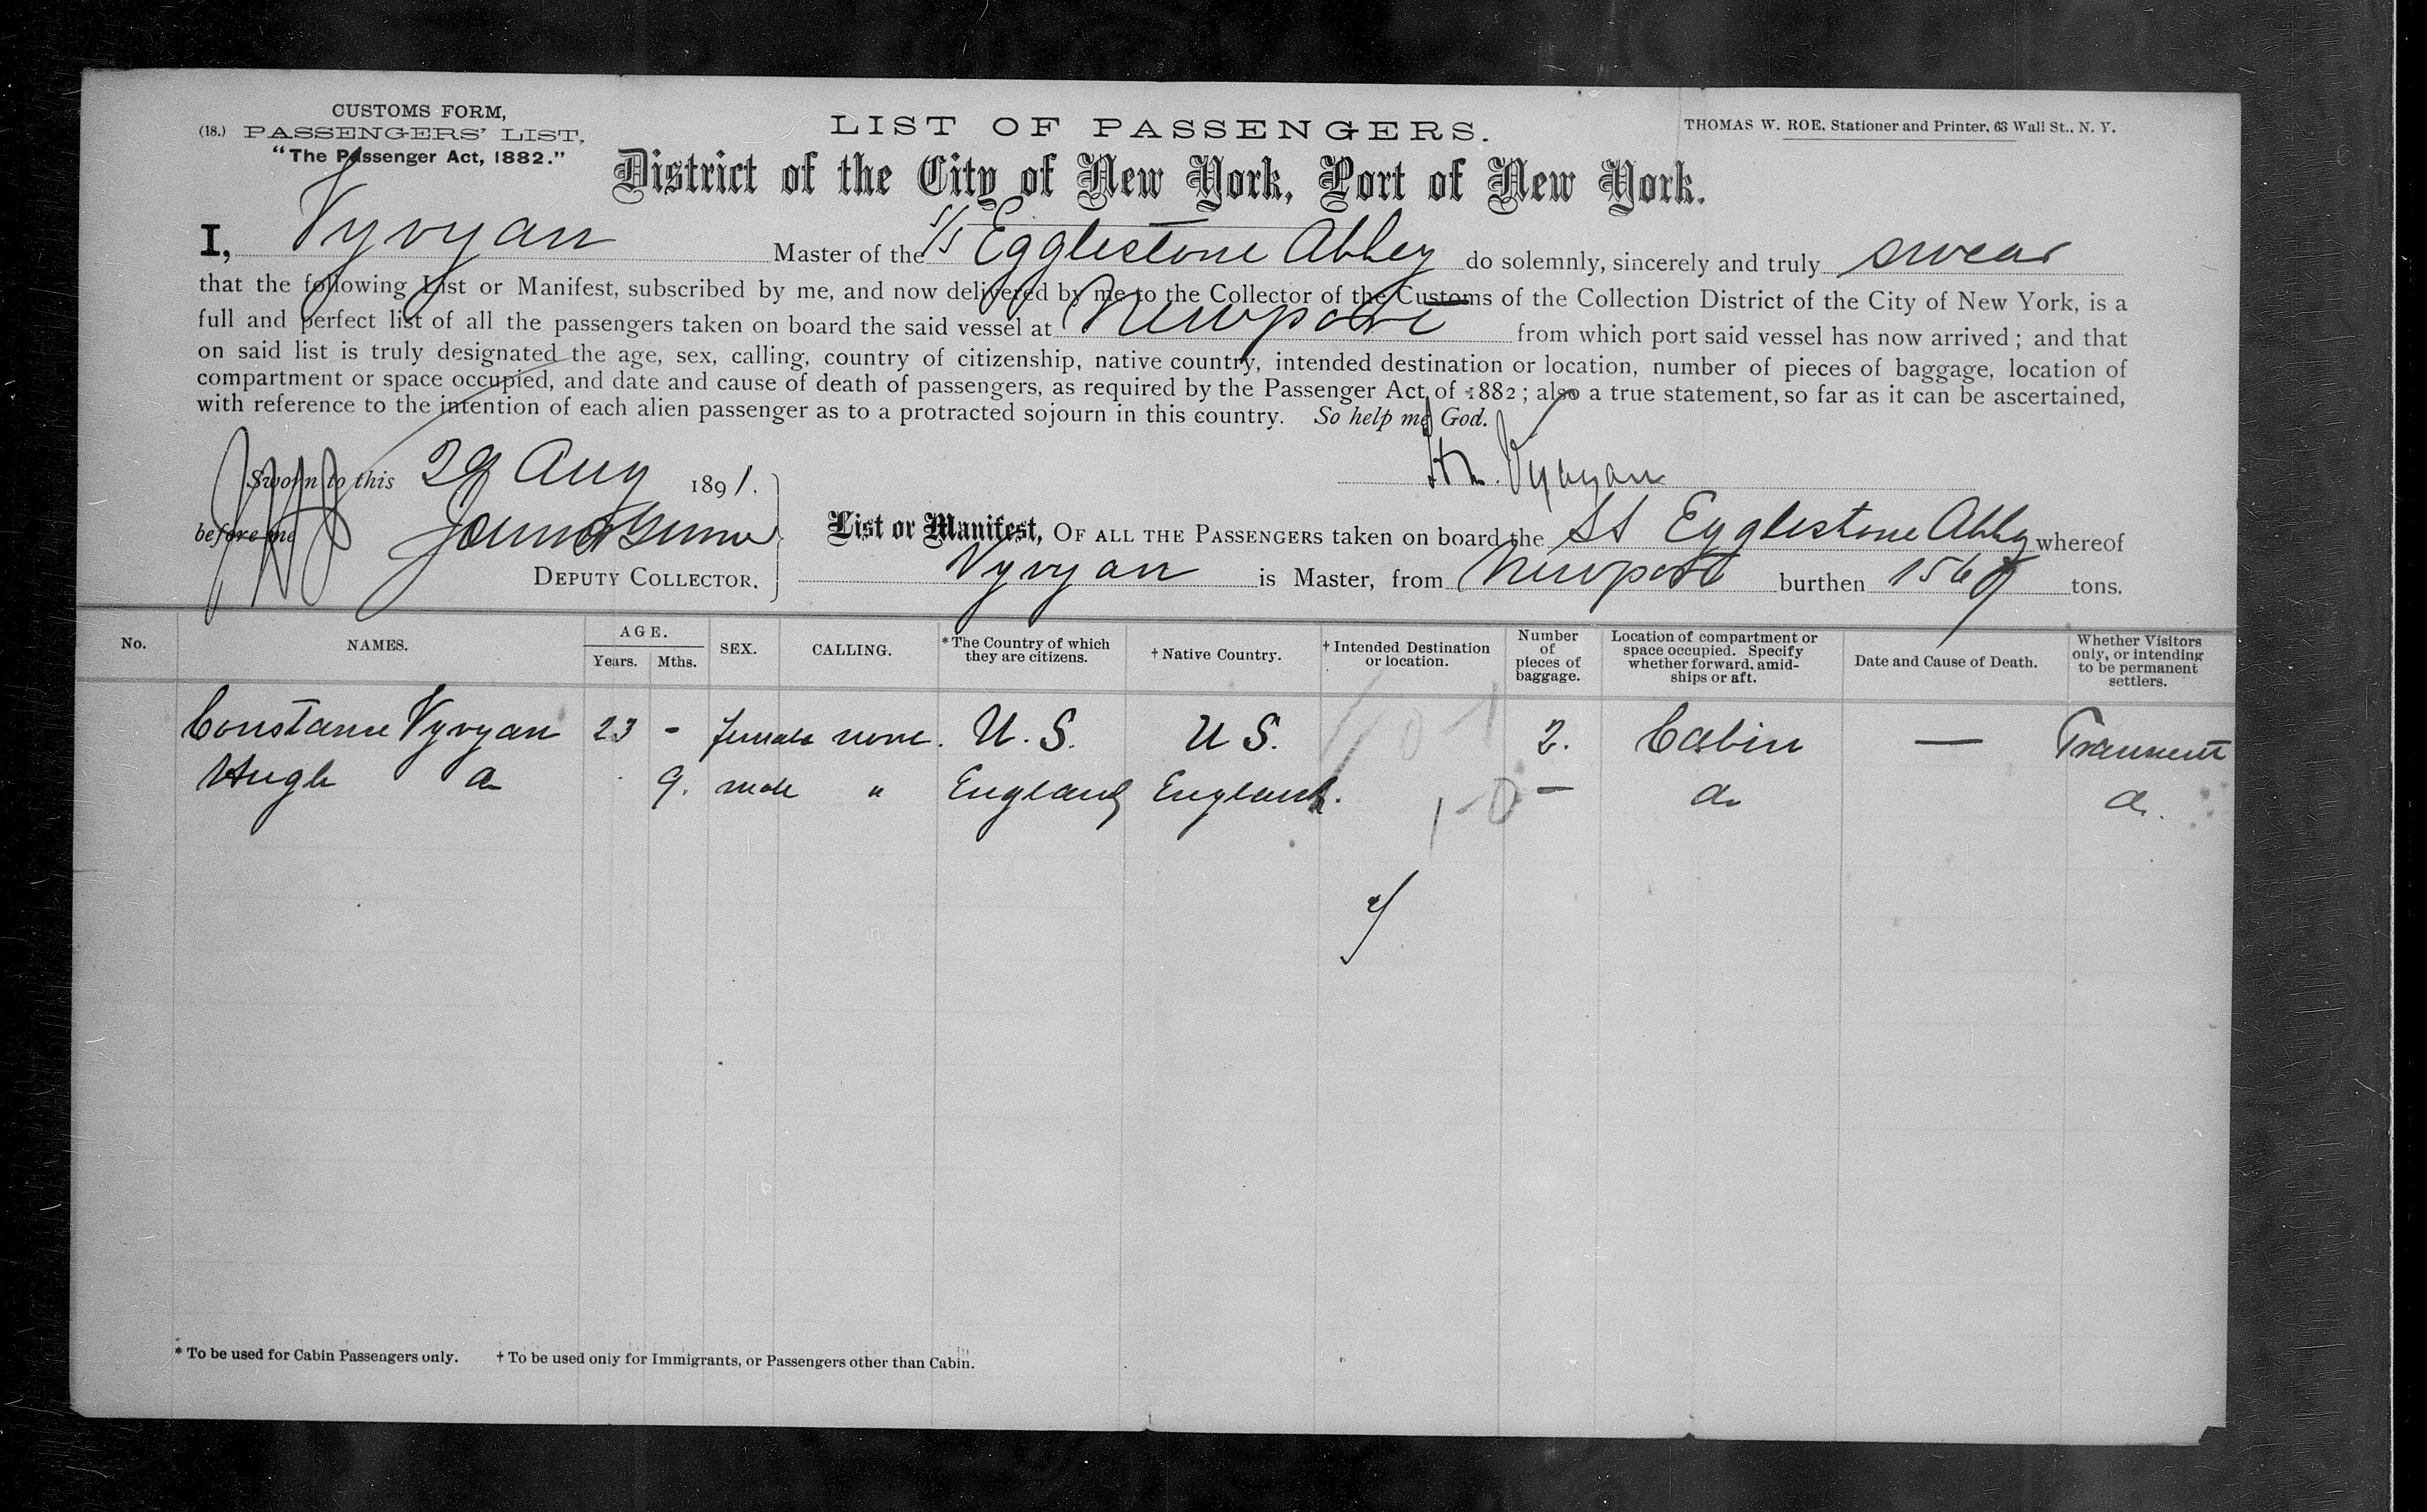 CUSTOMS FORM,
(18.) PASSENGERS' LIST,
"The Passenger Act, 1882."
LIST OF PASSENGERS.
THOMAS W. ROE, Stationer and Printer, 63 Wall St., N. Y.
District of the City of New York, Port of New York.
I, Vyvyan Master of the S/S Egglestone Abbey do solemnly, sincerely and truly swear
that the following List or Manifest, subscribed by me, and now delivered by me to the Collector of the Customs of the Collection District of the City of New York, is a
full and perfect list of all the passengers taken on board the said vessel at Newport from which port said vessel has now arrived; and that
on said list is truly designated the age, sex, calling, country of citizenship, native country, intended destination or location, number of pieces of baggage, location of
compartment or space occupied, and date and cause of death of passengers, as required by the Passenger Act of 1882; also a true statement, so far as it can be ascertained,
with reference to the intention of each alien passenger as to a protracted sojourn in this country. So help me God.
Sworn to this 29 Aug 1891.
Vyvyan
before me
DEPUTY COLLECTOR.
List or Manifest, OF ALL THE PASSENGERS taken on board the SS Egglestone Abbey whereof
Vyvyan is Master, from Newport burthen 1567 tons.
No. NAMES. AGE. Years. Mths. SEX. CALLING. *The Country of which they are citizens. †Native Country. †Intended Destination or location. Number of pieces of baggage. Location of compartment or space occupied. Specify whether forward, amidships or aft. Date and Cause of Death. Whether Visitors only, or intending to be permanent settlers.
Constance Vyvyan 23 - female none. U.S. U S. 2. Cabin — Transient
Hugh do 9. male " England England. — do do.
1-0
* To be used for Cabin Passengers only. † To be used only for Immigrants, or Passengers other than Cabin.